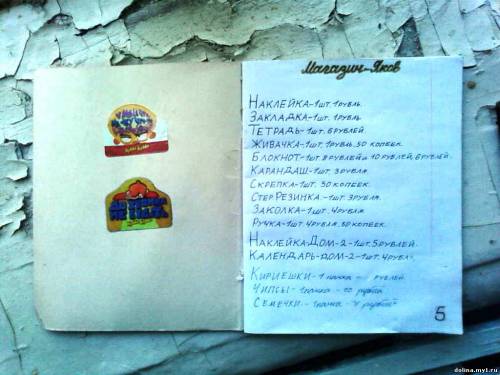 Магазин-Яков
Наклейка-1шт. 1рубль.
Закладка-1шт. 1рубль
Тетрадь-1шт. 6рублей.
Живачка-1шт. 1рубль. 50 копеек.
Блокнот-1шт 8рублей и 10рублей, 6рублей.
Карандаш-1шт. 3рубля.
Скрепка-1шт. 50 копеек.
СтерРезинка-1шт. 3рубля.
Заколка-1шт. 4рубля.
Ручка-1шт. 4рубля. 50 копеек.
Наклейка-Дом-2-1шт. 5рублей.
Календарь-Дом-2-1шт. 4рубл.
Кириешки-1 пачка- рублей.
Чипсы-1пачка-
Семечки-1пачка-
5
dolina.my1.ru